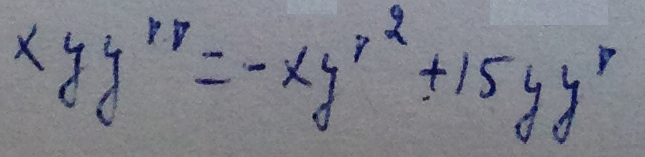 xyy'' = -xy'² + 15yy'